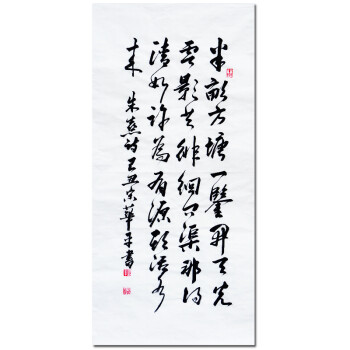 半畝方塘一鑒開天光
雲影共徘徊问渠那得
清如許為有源頭活水
来 朱熹詩 己丑宋華平書